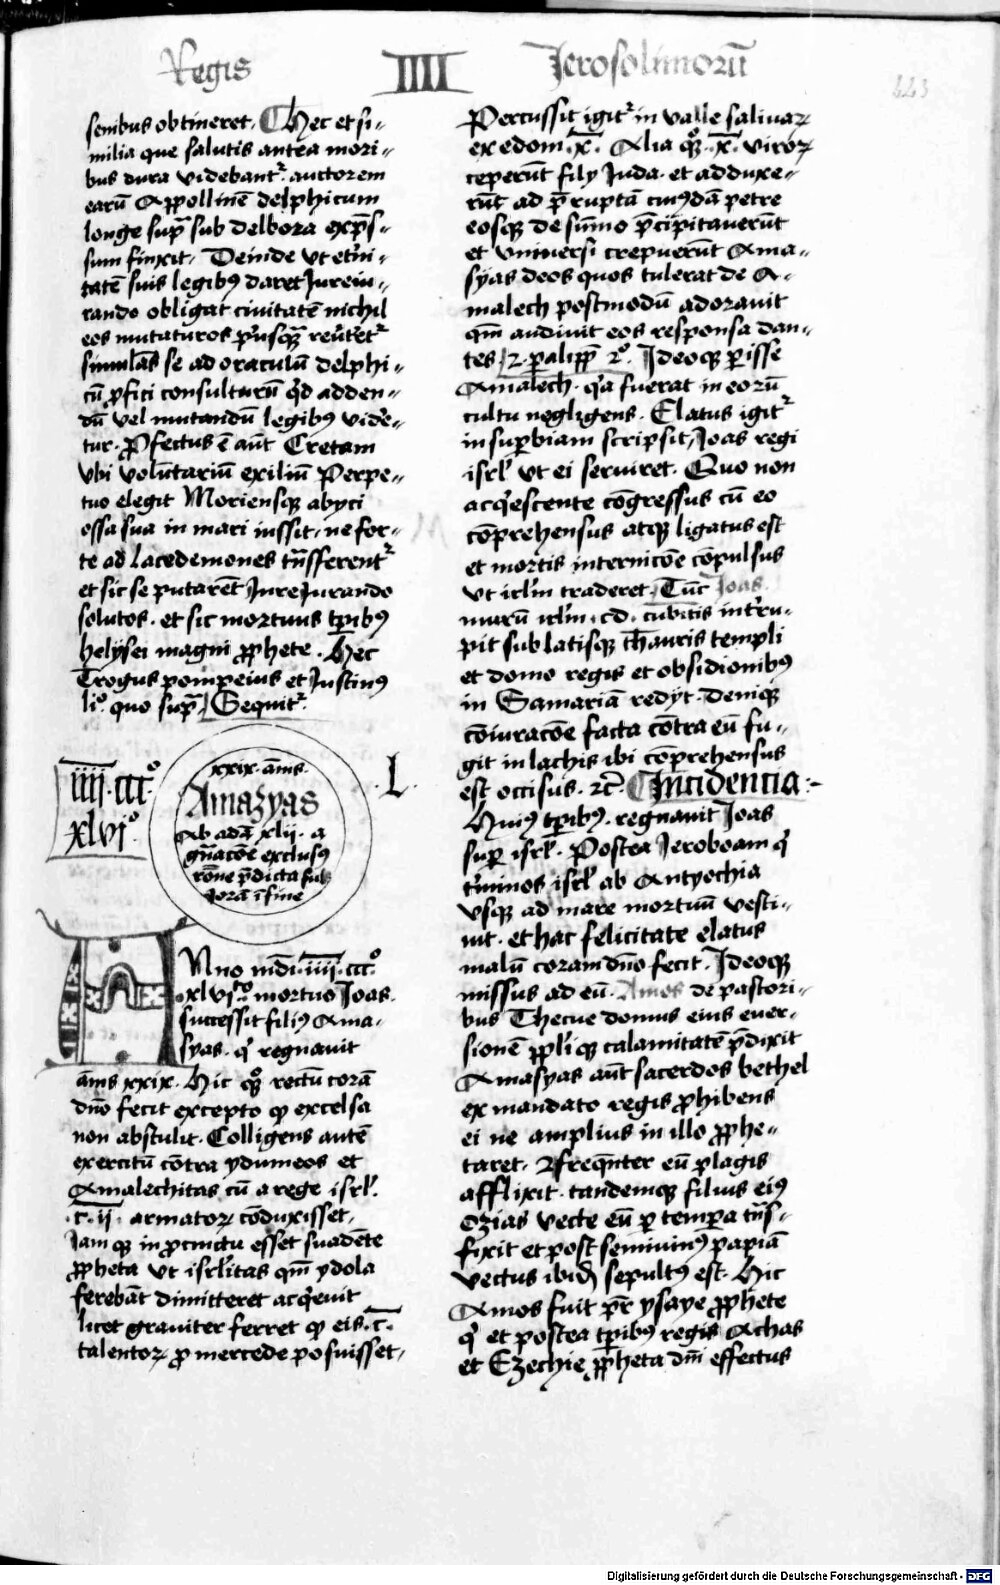 Regis IIII Jerosolimorū
443
senibus obtineret. Hec et si-
milia que salutis antea mori-
bus dura videbant᷑. auctorem
earū Appollinē delphicum
longe sup̄ sub delbora exp̄s-
sum finxit. Deinde ut et̄ni-
tatē suis legibꝰ daret Jureiu-
rando obligat ciuitatē nichil
eos mutaturos p̓usqꝫ reu̓tet᷑
simulās se ad oraculū delphi-
cū ꝓfici consulturū qͥd adden-
dū vel mutandū legibꝰ vide-
tur. Ꝓfectus ē aūt Cretam
ubi volūtariū exiliū Perpe-
tuo elegit Moriensqꝫ abyci
ossa sua in mari iussit. ne for-
te ad lacedemones tn̄sferent᷑
et sic se putarēt Jure Jurando
solutos. et sic mortuus tꝑibꝰ
helysei magni ꝓphete. Hec
Trogus pompeius et Justinꝰ
liͦ. quo sup̄. Sequit᷑.
IIII.CCCͦ.
xlviͦ.
xxix. ānis.
Amazyas
Ab adā xlii. a
gn̄acōe exclusꝰ
rōne p̄dicta sub
Jorā ī fine
.L.
Anno mūdi. IIII. CCCͦ.
xlviͦ. mortuo Joas.
successit filiꝰ Ama-
syas. qͥ regnauit
ānis xxix. Hic qͦꝫ rectū corā
dn̄o fecit excepto qꝫ excelsa
non abstulit. Colligens autē
exercitū cōtra ydumeos et
Amalechitas cū a rege isrl̓.
.c. ii. armatoꝝ cōduxisset.
Jam qꝫ in ꝓcinctu esset suadēte
ꝓpheta ut isrl̓itas qm̄ ydola
ferebāt dimitteret acqͥeuit
licet grauiter ferret qꝫ eis. c.
talentoꝝ ꝓ mercede posuisset.
Percussit igit᷑ in valle salinaꝝ
ex edom. x̄. Alia qͦꝫ. x̄. viroꝝ
ceperūt fily Juda. et adduxe-
rūt ad p̄ruptā cuiꝰdā petre
eosqꝫ de sūmo p̄cipitauerūt
et vniuersi crepuerūt Ama-
syas deos quos tulerat de A-
malech postmodū adorauit
qm̄ audiuit eos responsa dan-
tes 2. paliꝑ 2ͦ. Ideoqꝫ ꝑisse
Amalech. qͥa fuerat in eorū
cultu negligens. Elatus igit᷑
in suꝑbiam scripsit Joas regi
isrl̓ ut ei seruiret. Quo non
acqͥescente cōgressus cū eo
cōprehensus atqꝫ ligatus est
et mortis internicōe cōpulsus
ut irl̓m traderet. Tūc Joas
murū irl̓m. cd. cubitis int̓ru-
pit sublatisqꝫ thauris templi
et domo regis et obsidionibꝰ
in Samariā redyt. deniqꝫ
cōiuracōe facta cōtra eū fu-
git in lachis ibi cōprehensus
est occisus. ⁊c̄. Incidencia:-
Huiꝰ tꝑibꝰ. regnauit Joas
suꝑ isrl̓. Postea Jeroboam qͥ
t̓minos isrl̓ ab Antyochia
usqꝫ ad mare mortuū resti-
tuit. et hac felicitate elatus
malū coram dn̄o fecit. Ideoqꝫ
missus ad eū. Amos de pastori-
bus Thecue domus eius euer-
sionē ꝓpl̓iqꝫ calamitatē p̄dixit
Amasyas aūt sacerdos bethel
ex mandato regis ꝓhibens
ei ne amplius in illo ꝓphe-
taret. ⁊ freqn̄ter eū plagis
afflixit. tandemqꝫ filius eiꝰ
Ozias vecte eū ꝑ tempora tn̄s-
fixit et post semiuiuꝰ ī patriā
vectus ibidꝫ sepultꝰ est. Hic
Amos fuit pr̄ ysaye ꝓphete
qͥ et postea tꝑibꝰ regis Achas
et Ezechie ꝓpheta dn̄i effectus
Digitalisierung gefördert durch die Deutsche Forschungsgemeinschaft - DFG